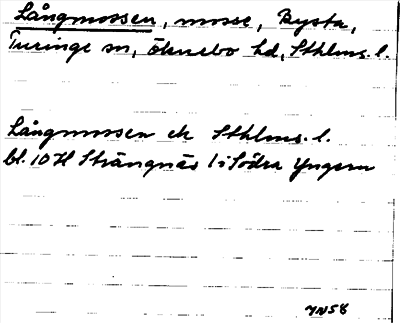 Långmossen, mosse, Bysta,
Turinge sn, Öknebo hd, Sthlms. l.
Långmossen ek Sthlms. l.
bl. 10 H Strängnäs 1:i Södra Yngern